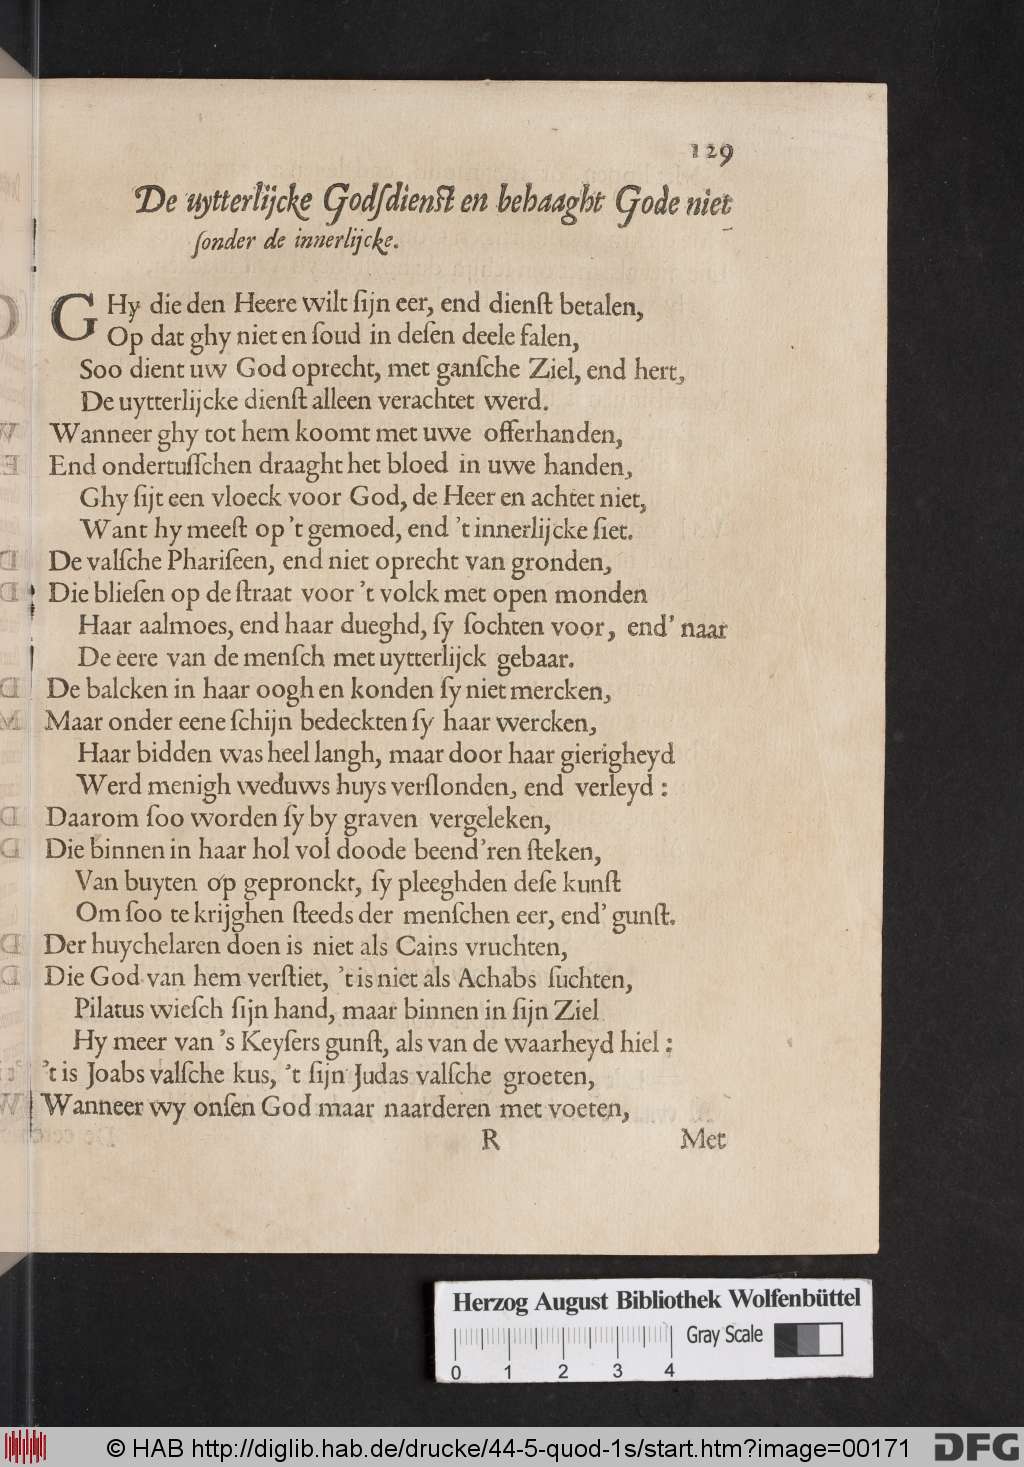 129
De uytterlijcke Godſdienſt en behaaght Gode niet
ſonder de innerlijcke.
GHy die den Heere wilt ſijn eer, end dienſt betalen,
Op dat ghy niet en ſoud in deſen deele falen,
Soo dient uw God oprecht, met ganſche Ziel, end hert,
De uytterlijcke dienſt alleen verachtet werd.
Wanneer ghy tot hem koomt met uwe offerhanden,
End ondertuſſchen draaght het bloed in uwe handen,
Ghy ſijt een vloeck voor God, de Heer en achtet niet,
Want hy meeſt op 't gemoed, end 't innerlijcke ſiet.
De valſche Phariſeen, end niet oprecht van gronden,
Die blieſen op de ſtraat voor 't volck met open monden
Haar aalmoes, end haar dueghd, ſy ſochten voor, end' naar
De eere van de menſch met uytterlijck gebaar.
De balcken in haar oogh en konden ſy niet mercken,
Maar onder eene ſchijn bedeckten ſy haar wercken,
Haar bidden was heel langh, maar door haar gierigheyd
Werd menigh weduws huys verſlonden, end verleyd :
Daarom ſoo worden ſy by graven vergeleken,
Die binnen in haar hol vol doode beend'ren ſteken,
Van buyten op gepronckt, ſy pleeghden deſe kunſt
Om ſoo te krijghen ſteeds der menſchen eer, end' gunſt.
Der huychelaren doen is niet als Cains vruchten,
Die God van hem verſtiet, 't is niet als Achabs ſuchten,
Pilatus wieſch ſijn hand, maar binnen in ſijn Ziel
Hy meer van 's Keyſers gunſt, als van de waarheyd hiel :
't is Joabs valſche kus, 't ſijn Judas valſche groeten,
Wanneer wy onſen God maar naarderen met voeten,
R Met
Herzog August Bibliothek Wolfenbüttel
Gray Scale
0 1 2 3 4
© HAB http://diglib.hab.de/drucke/44-5-quod-1s/start.htm?image=00171 DFG